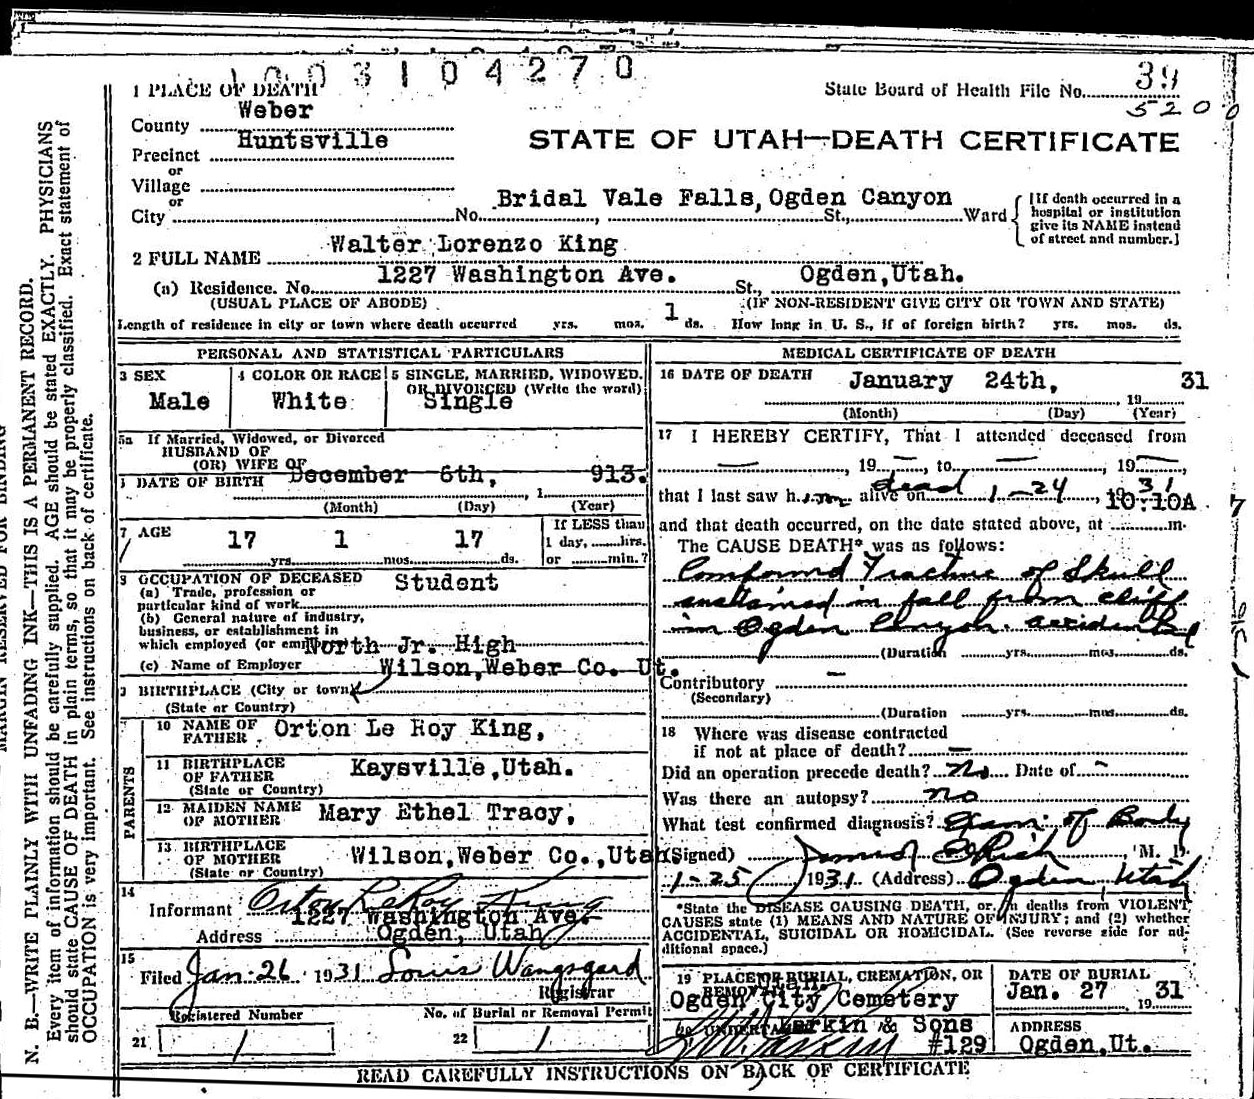 1003104270
1 PLACE OF DEATH
State Board of Health File No. 39
5200
County Weber
Precinct Huntsville
STATE OF UTAH—DEATH CERTIFICATE
or
Village
or
City No. Bridal Vale Falls, Ogden Canyon St., Ward
[If death occurred in a
hospital or institution
give its NAME instead
of street and number.]
2 FULL NAME Walter Lorenzo King
(a) Residence. No. 1227 Washington Ave. St., Ogden,Utah.
(USUAL PLACE OF ABODE) (IF NON-RESIDENT GIVE CITY OR TOWN AND STATE)
Length of residence in city or town where death occurred yrs. mos. 1 ds. How long in U. S., if of foreign birth? yrs. mos. ds.
PERSONAL AND STATISTICAL PARTICULARS
3 SEX
Male
4 COLOR OR RACE
White
5 SINGLE, MARRIED, WIDOWED,
OR DIVORCED (Write the word)
Single
5a If Married, Widowed, or Divorced
HUSBAND OF
(OR) WIFE OF
DATE OF BIRTH December 6th, 1913.
(Month) (Day) (Year)
7 AGE
17 yrs. 1 mos. 17 ds.
If LESS than
1 day, hrs.
or min.?
8 OCCUPATION OF DECEASED
(a) Trade, profession or
particular kind of work Student
(b) General nature of industry,
business, or establishment in
which employed (or employer) North Jr. High
(c) Name of Employer
Wilson,Weber Co. Ut.
9 BIRTHPLACE (City or town)
(State or Country)
PARENTS
10 NAME OF
FATHER Orton Le Roy King,
11 BIRTHPLACE
OF FATHER
(State or Country) Kaysville,Utah.
12 MAIDEN NAME
OF MOTHER Mary Ethel Tracy,
13 BIRTHPLACE
OF MOTHER
(State or Country) Wilson,Weber Co.,Utah.
14
Informant Orton LeRoy King
1227 Washington Ave.
Address Ogden, Utah
15
Filed Jan. 26 1931 Louis Wangsgard
Registrar
Registered Number
21 1
No. of Burial or Removal Permit
22 1
MEDICAL CERTIFICATE OF DEATH
16 DATE OF DEATH January 24th, 1931
(Month) (Day) (Year)
17 I HEREBY CERTIFY, That I attended deceased from
— , 19 — , to — , 19 — ,
that I last saw him alive on dead 1-24 , 1931
and that death occurred, on the date stated above, at 10:10A m.
The CAUSE DEATH* was as follows:
Compound Fracture of Skull
sustained in fall from cliff
in Ogden Canyon. accidental
(Duration yrs. mos. ds.
Contributory —
(Secondary)
(Duration yrs. mos. ds.
18 Where was disease contracted
if not at place of death? —
Did an operation precede death? no Date of -
Was there an autopsy? no
What test confirmed diagnosis? Exam. of Body
(Signed) M. D.
1-25 1931 (Address) Ogden, Utah
*State the DISEASE CAUSING DEATH, or, in deaths from VIOLENT
CAUSES state (1) MEANS AND NATURE OF INJURY; and (2) whether
ACCIDENTAL, SUICIDAL OR HOMICIDAL. (See reverse side for additional space.)
19 PLACE OF BURIAL, CREMATION, OR
REMOVAL Utah.
Ogden City Cemetery
DATE OF BURIAL
Jan. 27 1931
20 UNDERTAKER Larkin & Sons
#129
ADDRESS
Ogden,Ut.
READ CAREFULLY INSTRUCTIONS ON BACK OF CERTIFICATE
MARGIN RESERVED FOR BINDING
N. B.—WRITE PLAINLY WITH UNFADING INK—THIS IS A PERMANENT RECORD.
Every item of information should be carefully supplied. AGE should be stated EXACTLY. PHYSICIANS
should state CAUSE OF DEATH in plain terms, so that it may be properly classified. Exact statement of
OCCUPATION is very important. See instructions on back of certificate.